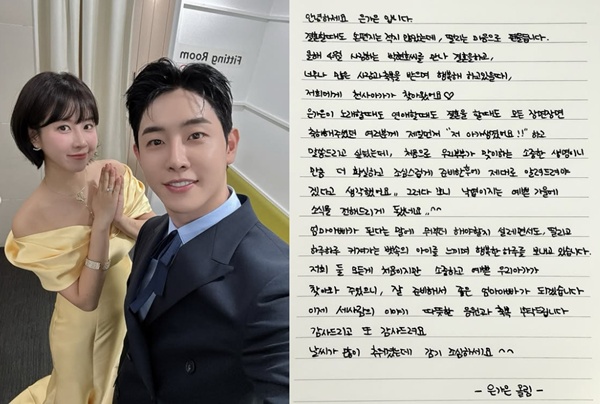 Fitting Room
안녕하세요 은가은 입니다.
결혼할때도 손편지는 적지 않았는데, 떨리는 마음으로 펜을듭니다.
올해 4월 사랑하는 박현호씨를 만나 결혼을하고,
너무나 많은 사랑과축복을 받으며 행복해 하고있을때,
저희에게 천사아가가 찾아왔어요♡
은가은이 노래할때도 연애할때도 결혼을 할때도 모든 장면장면
축하해주셨던 여러분께 제일먼저 "저 아가생겼어요!!" 하고
말씀드리고 싶었는데, 처음으로 우리부부가 맞이하는 소중한 생명이니
만큼 더 확실하고 조심스럽게 준비한후에 제대로 알려드려야
겠다고 생각했어요.. 그러다 보니 낙엽이지는 예쁜 가을에
소식을 전해드리게 됐네요..^^
엄마아빠가 된다는 말에 뭐부터 해야할지 설레면서도, 떨리고
하루하루 커져가는 뱃속의 아이를 느끼며 행복한 하루를 보내고 있습니다.
저희 둘 모든게 처음이지만 소중하고 예쁜 우리아가가
찾아와 주었으니, 잘 준비해서 좋은 엄마아빠가 되겠습니다
이제 세사람의 이야기 따뜻한 응원과 축복 부탁드립니다
감사드리고 또 감사드려요
날씨가 많이 추워졌는데 감기 조심하세요 ^^
- 은가은 올림 -